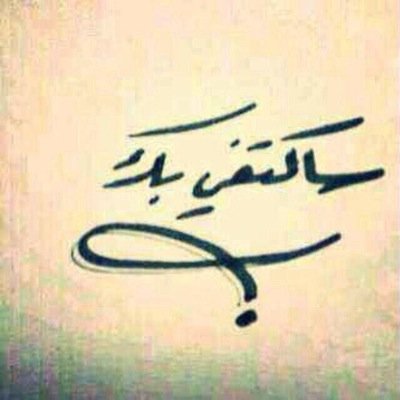 ساكتفي بك